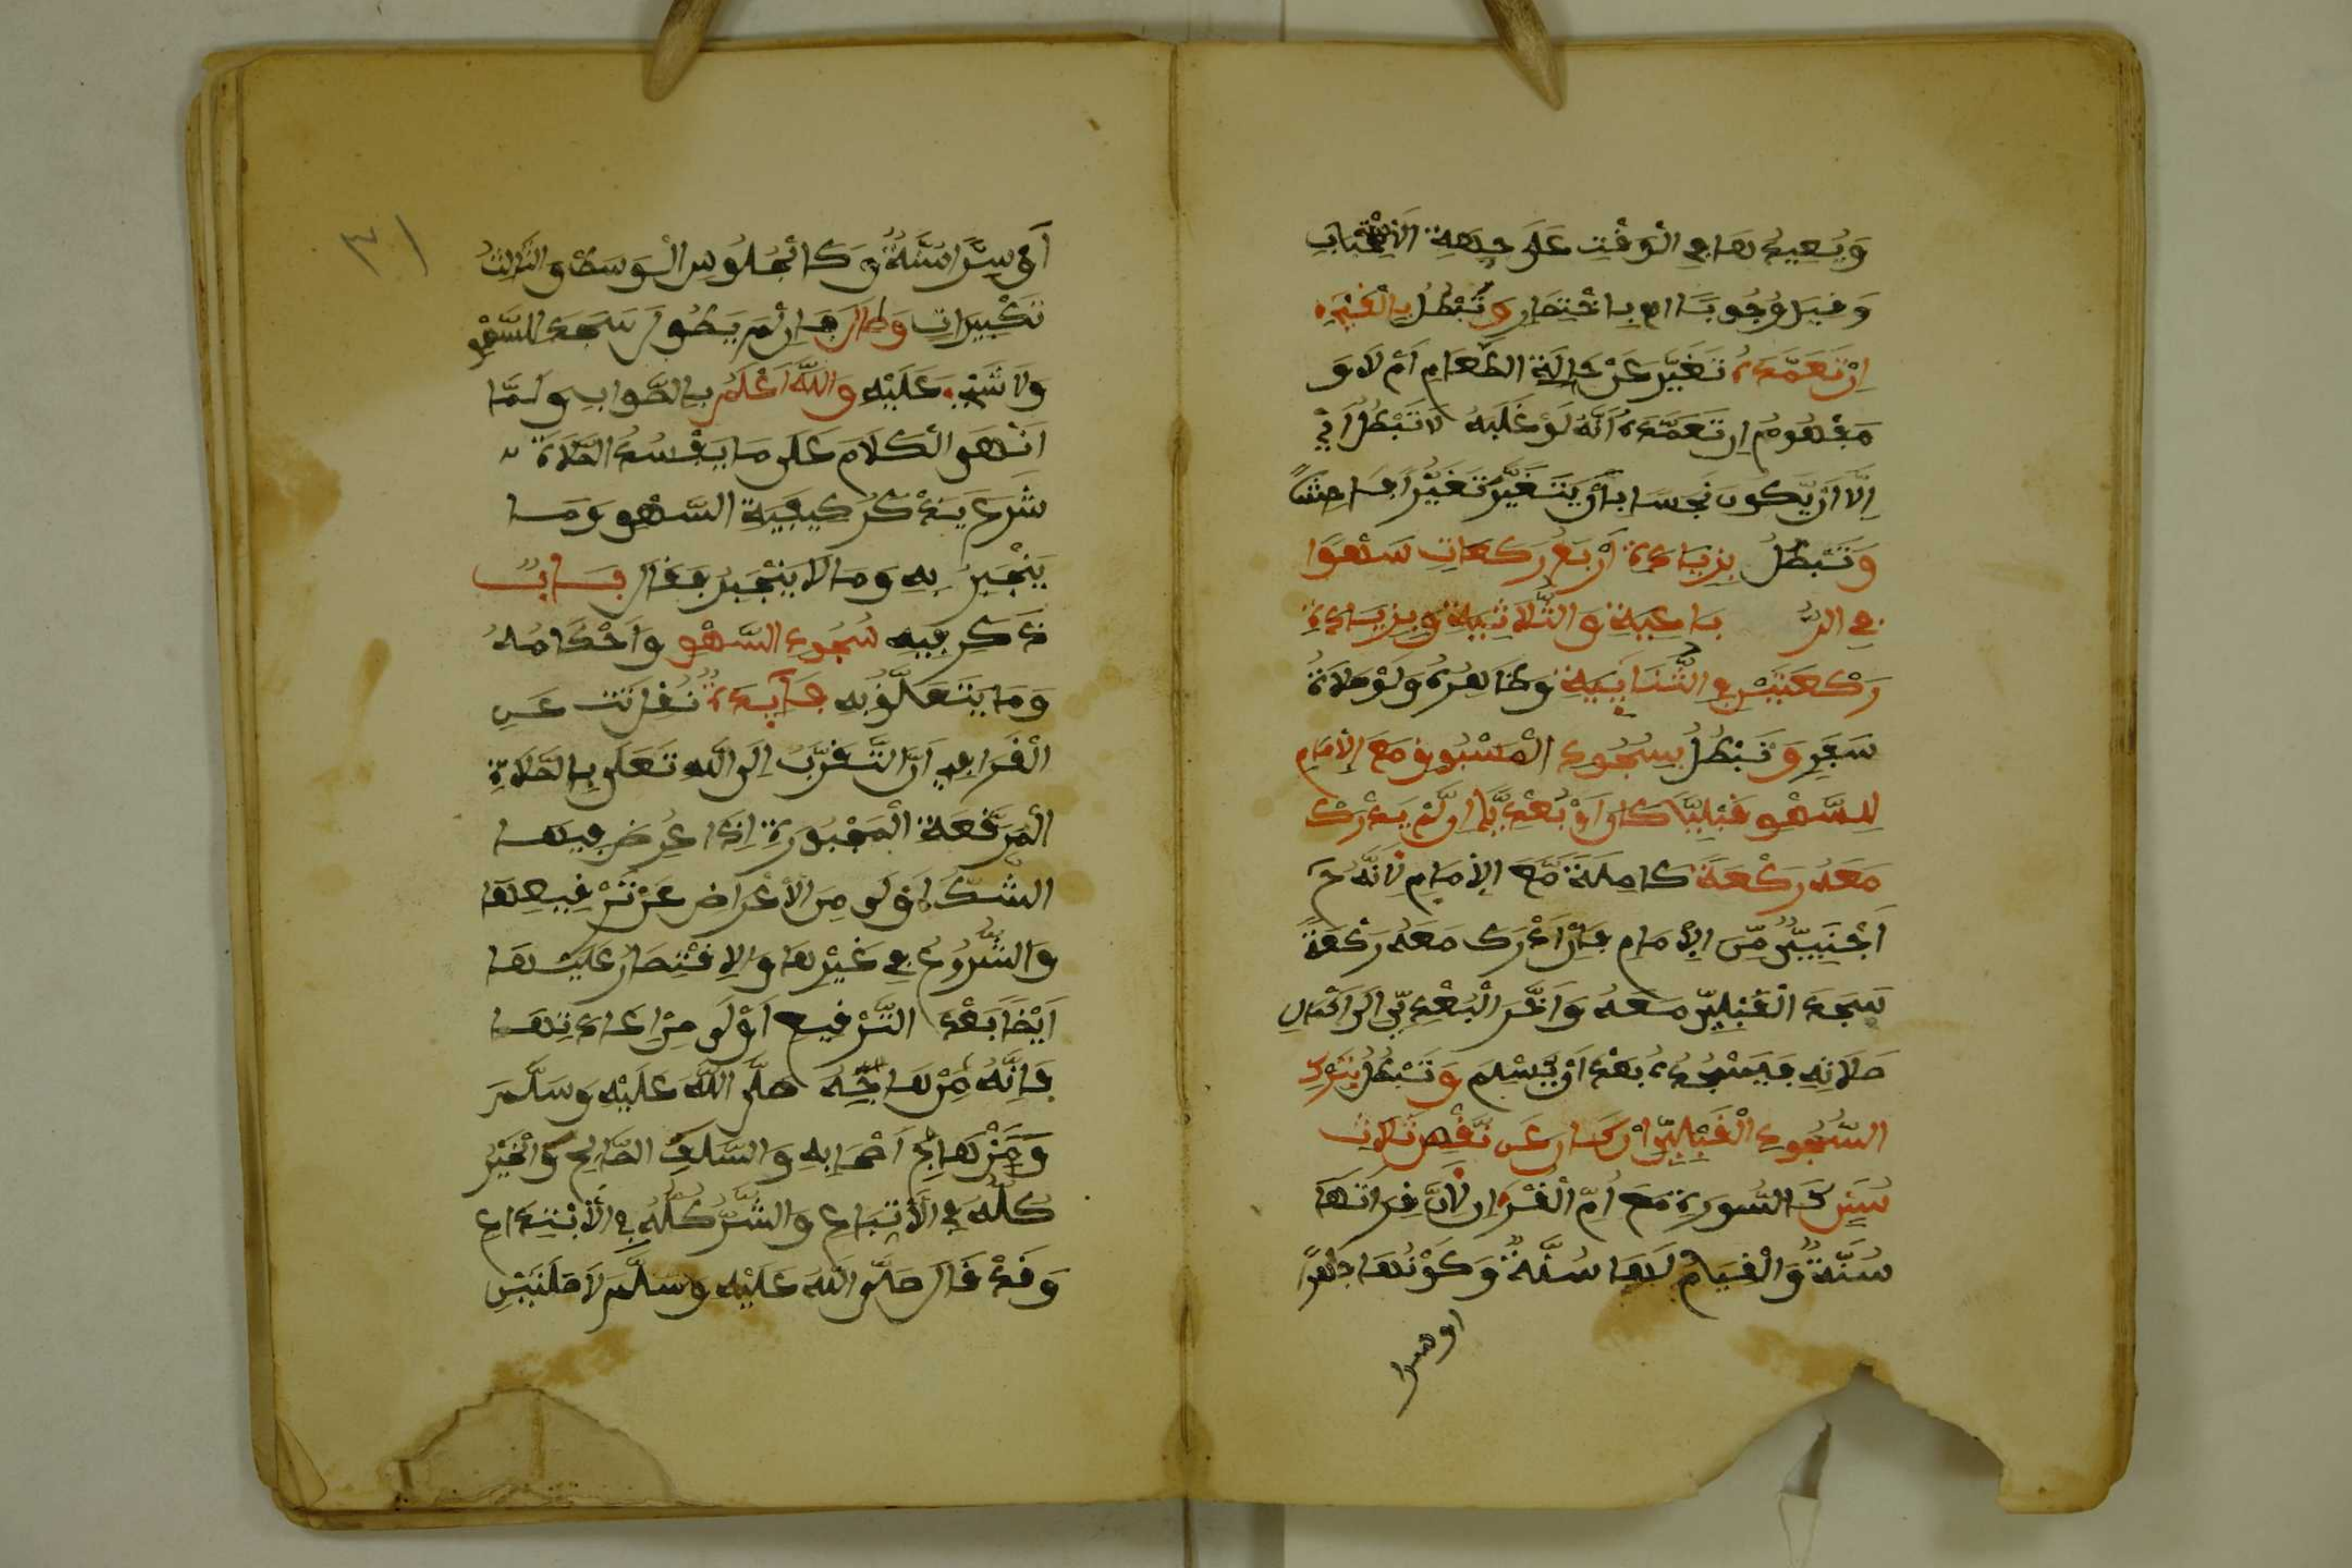 وَيُعِيدُهَا فِي الْوَقْتِ عَلَى جِهَةِ الِاسْتِحْبَابِ
وَقِيلَ وُجُوبًا اهـ بِاخْتِصَارٍ وَتَبْطُلُ بِالْقَيْءِ
إِنْ تَعَمَّدَهُ تَغَيَّرَ عَنْ حَالَةِ الطَّعَامِ أَمْ لَا وَ
مَفْهُومُ إِنْ تَعَمَّدَهُ أَنَّهُ لَوْ غَلَبَهُ لَا تَبْطُلُ أَيْ
إِلَّا أَنْ يَّكُونَ نَجِسًا بِأَنْ يَتَغَيَّرَ تَغَيُّرًا فَاحِشًا
وَتَبْطُلُ بِزِيَادَةِ أَرْبَعِ رَكَعَاتٍ سَهْوًا
فِي الرُّ بَاعِيَةِ وَالثُّلَاثِيَةِ وَبِزِيَادَةِ
رَكْعَتَيْنِ فِي الثُّنَائِيَةِ وَظَاهِرُهُ وَلَوْ صَلَاةُ
سَفَرٍ وَتَبْطُلُ بِسُجُودِ الْمَسْبُوقِ مَعَ الْإِمَامِ
لِلسَّهْوِ قَبْلِيًّا كَانَ أَوْ بَعْدِيًّا إِنْ لَّمْ يُدْرِكْ
مَعَهُ رَكْعَةً كَامِلَةً مَّعَ الْإِمَامِ لِأَنَّهُ ح
أَجْنَبِيٌّ مِّنَ الْإِمَامِ فَإِنْ أَدْرَكَ مَعَهُ رَكْعَةً
سَجَدَ الْقَبْلِيَّ مَعَهُ وَأَخَّرَ الْبَعْدِيَّ إِلَى إِكْمَالِ
صَلَاتِهِ فَيَسْجُدُهُ بَعْدَ أَنْ يُّسَلِّمَ وَتَبْطُلُ بِتَرْكِ
السُّجُودِ الْقَبْلِيِّ إِنْ كَانَ عَنْ نَّقْصِ ثَلَاثِ
سُنَنٍ كَالسُّورَةِ مَعَ أُمِّ الْقُرْءَانِ لِأَنَّ قِرَاءَتَهَا
سُنَّةٌ وَالْقِيَامُ لَهَا سُنَّةٌ وَكَوْنُهَا جَهْرًا
أو سرا
٣١
أَوْ سِرًّا سُنَّةٌ وَكَالْجُلُوسِ الْوَسَطِ وَالثَّلَاثُ
تَكْبِيرَاتٍ وَطَالَ فَإِنْ لَّمْ يَطُولْ سَجَدَ لِلسَّهْوِ
وَلَا شَيْءَ عَلَيْهِ وَاللَّهُ أَعْلَمُ بِالصَّوَابِ وَلَمَّا
انْتَهَى الْكَلَامَ عَلَى مَا يُفْسِدُ الصَّلَاةَ
شَرَعَ يَذْكُرُ كَيْفِيَةَ السَّهْوِ وَمَا
يَنْجَبِرُ بِهِ وَمَا لَا يَنْجَبِرُ فَقَالَ بَابٌ
ذَكَرَ فِيهِ سُجُودَ السَّهْوِ وَأَحْكَامُهُ
وَمَا يَتَعَلَّقُ بِهِ فَائِدَةٌ نُقِلَتْ عَنِ
الْقَرَافِي أَنَّ التَّقَرُّبَ إِلَى اللَّهِ تَعَلَى بِالصَّلَاةِ
الْمُرَقَّعَةِ الْمَجْبُورَةِ إِذَا عُرِضَ فِيهَا
الشَّكُّ أَوْلَى مِنَ الْأَعْرَاضِ عَنْ تَرْقِيعِهَا
وَالشُّرُوعُ فِي غَيْرِهَا وَالِاقْتِصَارُ عَلَيْهَا
أَيْضًا بَعْدَ التَّرْقِيعِ أَوْلَى مِنْ إِعَادَتِهَا
فَإِنَّهُ مِنْهَاجُهُ صَلَّى اللَّهُ عَلَيْهِ وَسَلَّمَ
وَمِنْهَاجُ أَصْحَابِهِ وَالسَّلَفِ الصَّالِحِ وَالْخَيْرُ
كُلُّهُ فِي الْاتِّبَاعِ وَالشَّرُّ كُلُّهُ فِي الْابْتِدَاعِ
وَقَدْ قَالَ صَلَّى اللَّهُ عَلَيْهِ وَسَلَّمَ لَا صَلَتَيْنِ